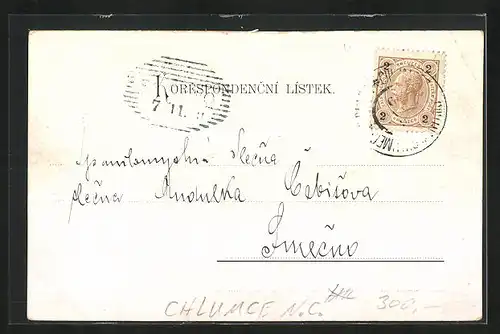 KORESPONDENČNÍ LÍSTEK.
2 2
2 2
7 11.
Spanilomyslná slečna
slečna Andulka Čebišova
Smečno
CHLUMCE N.C. 300,-